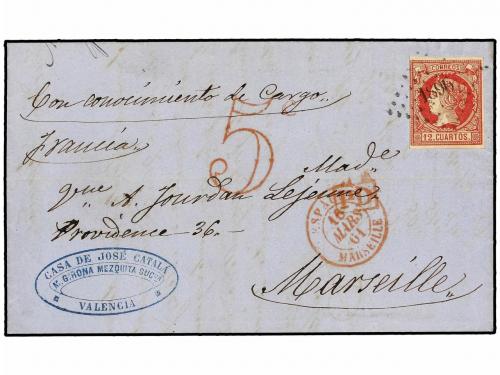 Con conocimiento de Cargo.
Francia
Made
que A. Jourdan Lejeune
Providence 36.
Marseille
5
CORREOS
12 CUARTOS.
MARS
61
MARSEILLE
CASA DE JOSÉ CATALÁ
MEZQUITA
VALENCIA